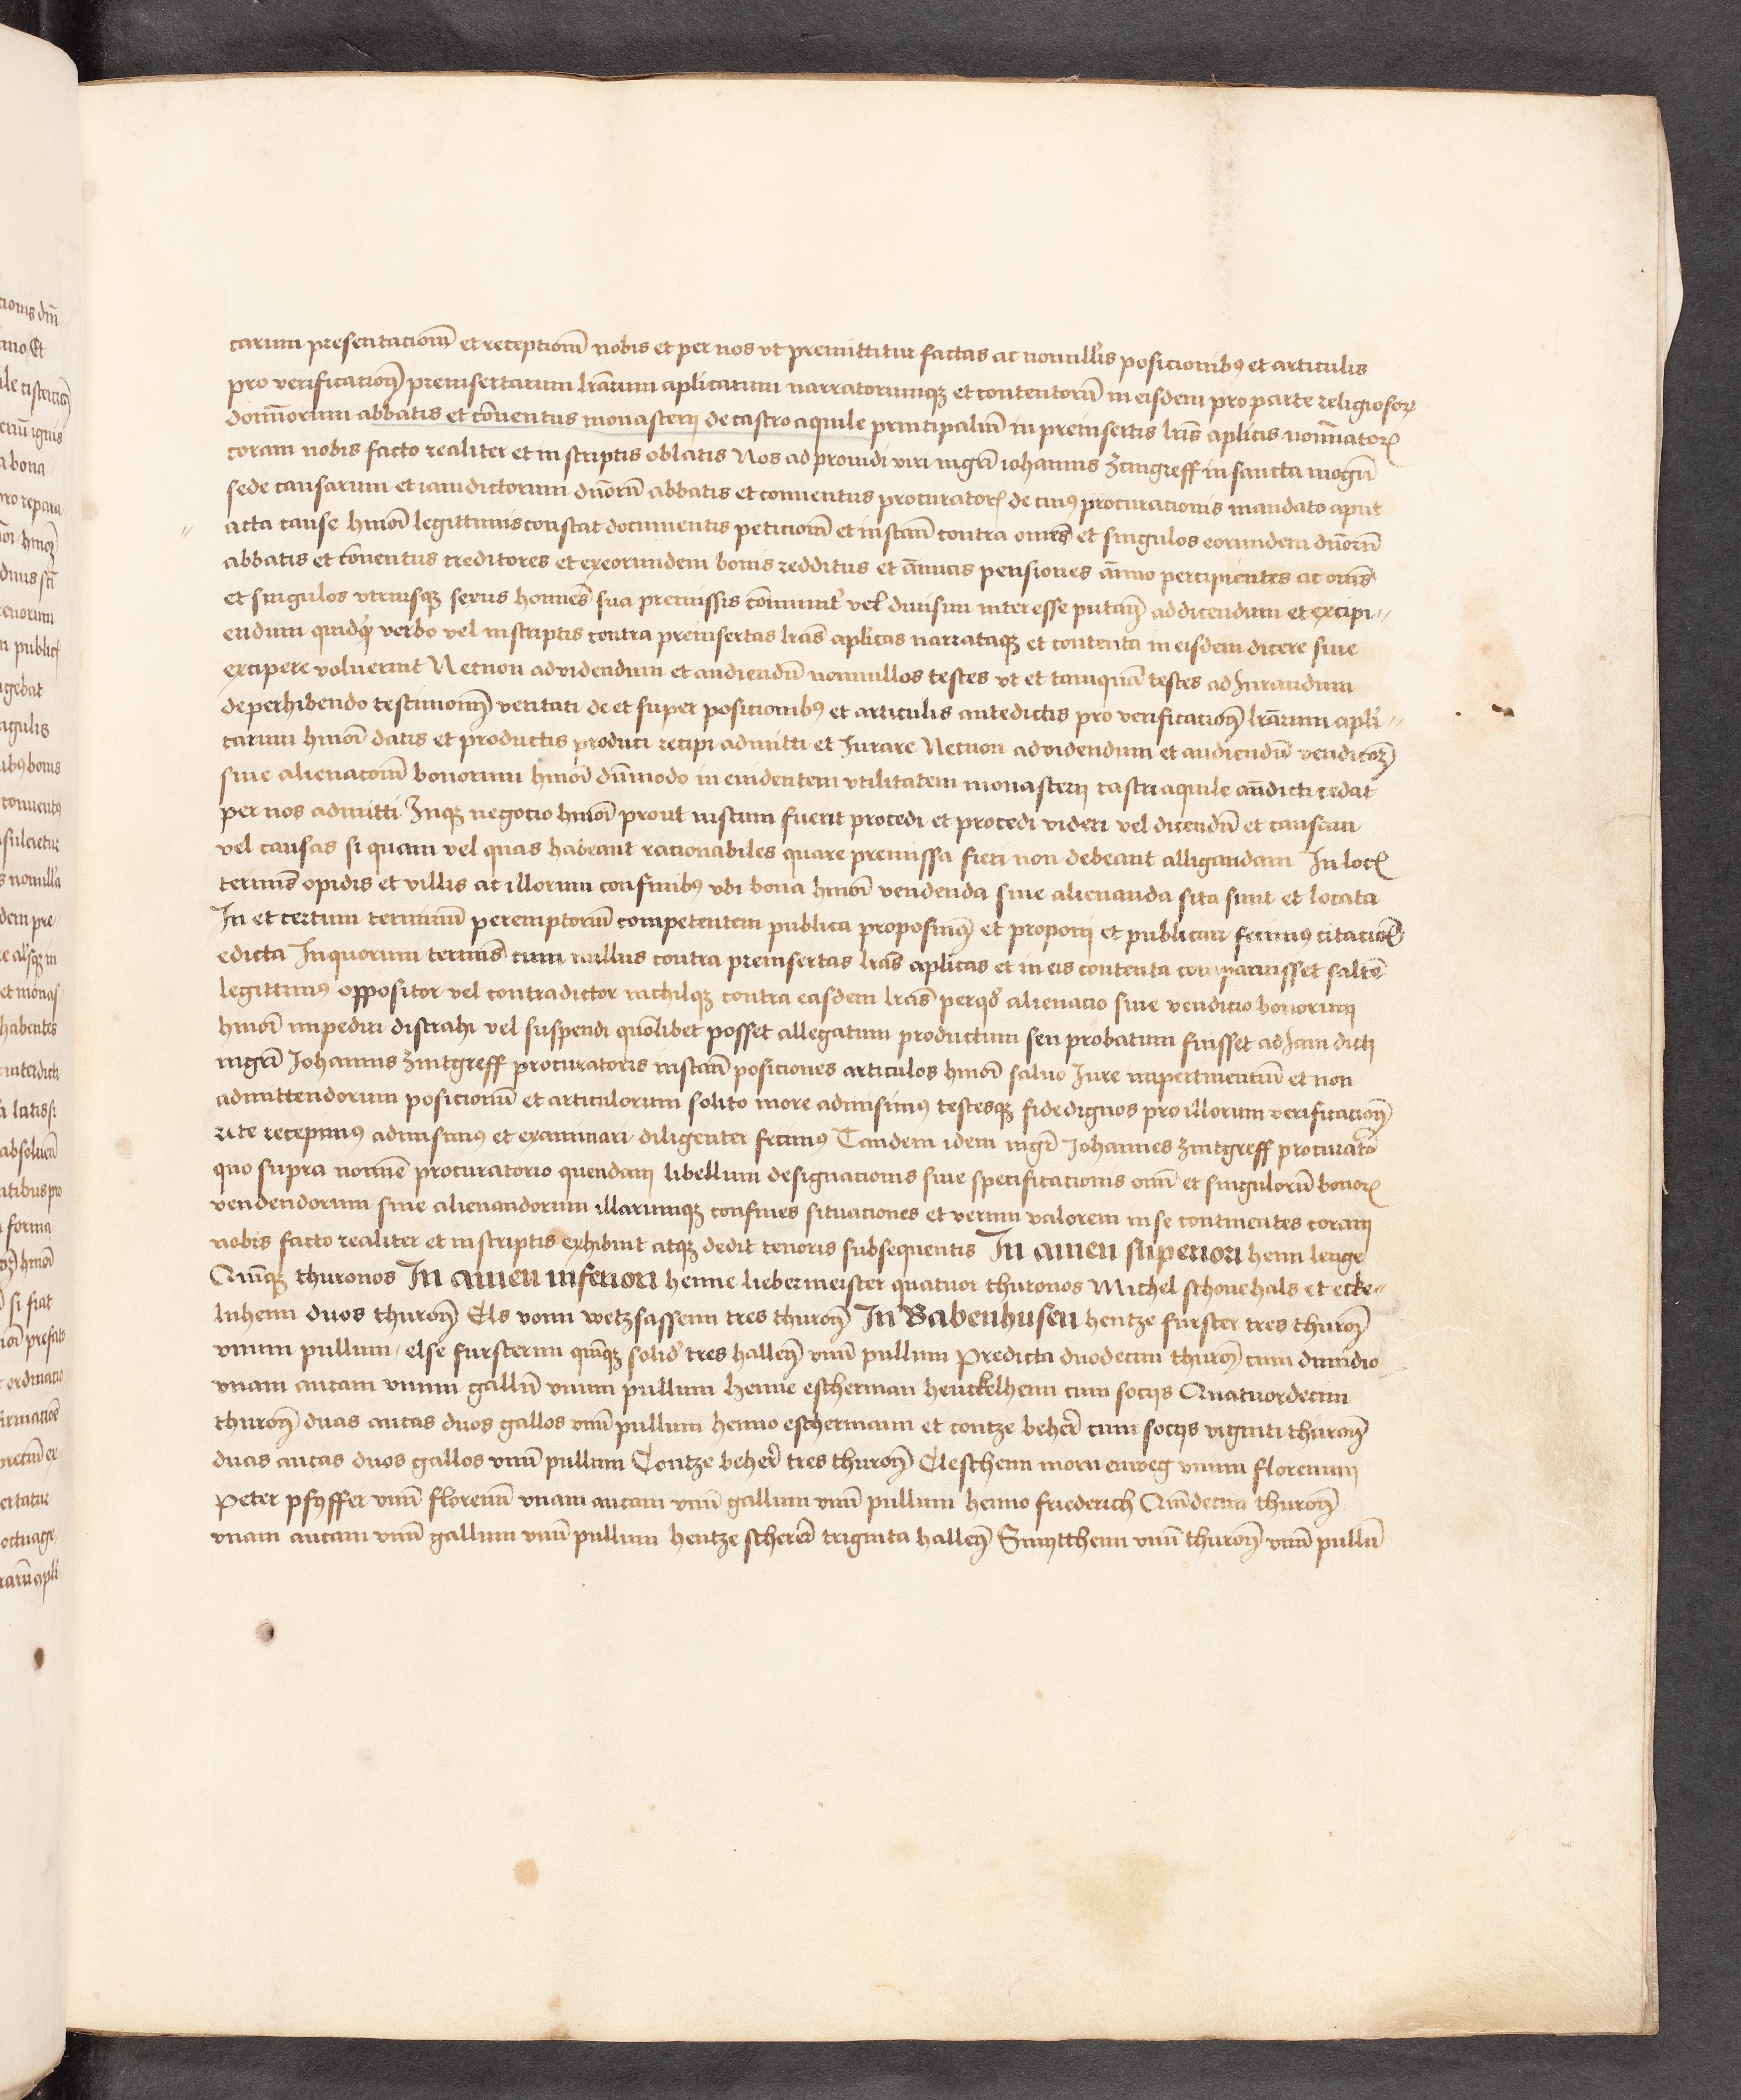 carum presentacionem̄ et receptionem̄ nobis et per nos vt premittitur factas ac nonnullis posicionibꝰ et articulis
pro verificacionē preinsertarum lr̄arum aplicarum narratorumqꝫ et contentorū in eisdem pro parte religiosoꝝ
domīnorum abbatis et cōnventus monasterij de castro aquile principaliū in preinsertis lr̄is aplicis nom̄inatoꝝ
coram nobis facto realiter et in scriptis oblatis Nos ad prouidi viri mgr̄i iohannis Zintgreff in sancta mogūn
sede causarum et iamdictorum dn̄orū abbatis et conuentus procuratoꝝ de cuiꝰ procuracionis mandato aput
acta cause hmōi legittimis constat documentis peticionē et instan̄ contra omēs et singulos eorundem dn̄orū
abbatis et cōuentus creditores et ex eorundem bonis redditus et an̄nuas pensiones an̄nuo percipientes ac omēs
et singulos vtriusqꝫ sexus homines sua premissis cōmunit̄ vel diuisim interesse putan̄ ad dicendum et excipi-
endum quidqͥd verbo vel in scriptis contra preinsertas lr̄as aplicas narrataqꝫ et contenta in eisdem dicere siue
excipere voluerint Necnon ad videndum et audiendū nonnullos testes vt et tamquā testes ad Jurandum
de perhibendo testimoniū veritati de et super posicionibꝰ et articulis antedictis pro verificacionē lr̄arum apli-
carum hmōi datis et productis produci recipi admitti et Jurare Necnon ad videndum et audiendū vendicionē
siue alienacionē bonorum hmōi dūmodo in euidentem vtilitatem monasterij castri aquile an̄dicti cedat
per nos admitti Inqꝫ negocio hmōi prout iustum fuerit procedi et procedi videri vel dicendū et causam
vel causas si quam vel quas habeant racionabiles quare premissa fieri non debeant alligandam In locꝭ
terminꝭ opidis et villis ac illorum confinibꝰ vbi bona hmōi vendenda siue alienanda sita sunt et locata
In et certum terminū peremptoriū competentem publica proposuimꝰ et proponi et publicari fecimꝰ citacionꝭ
edicta In quorum terminꝭ cum nullus contra preinsertas lr̄as aplicas et in eis contenta comparuisset saltē
legittimꝰ oppositor vel contradictor nichilqꝫ contra easdem lr̄as per qd̄ alienacio siue vendicio bonorum
hmōi impediri distrahi vel suspendi quōlibet posset allegatum productum seu probatum fuisset ad Jam dicti
mgr̄i Johannis Zintgreff procuratoris instan̄ posiciones articulos hmōi saluo Jure impertinentiū et non
admittendorum posicionū et articulorum solito more admisimꝰ testesqꝫ fidedignos pro illorum verificacionē
rite recepimꝰ admisimꝰ et examinari diligenter fecimꝰ Tandem idem mgr̄ Johannes Zintgreff procurator̄
quo supra nomine procuratorio quendam libellum designacionis siue specificacionis omī et singulorū bonoꝝ
vendendorum siue alienandorum illarumqꝫ confines situaciones et verum valorem in se continentes coram
nobis facto realiter et in scriptis exhibuit atqꝫ dedit tenoris subsequentis In amen superiori henn lenge
Quīqꝫ thuronos In amen inferiori henne liebermeister quatuor thuronos Michel schonehals et ecke-
lnhenn duos thuron̄ Els vonn wetzsassenn tres thuron̄ In Babenhusen hentze furster tres thuron̄
vnum pullum else fursterinn quīqꝫ solid̄ tres hallen̄ vnū pullum Predicta duodecim thuron̄ cum dimidio
vnam aucam vnum gallū vnum pullum henne escherman henckelhenn cum socijs Quatuordecim
thuron̄ duas aucas duos gallos vnū pullum henno eschermann et contze beher̄ cum socijs viginti thuron̄
duas aucas duos gallos vnū pullum Contze beher̄ tres thuron̄ Cleschenn morn enweg vnum florenum
Peter pfyffer vnū florenū vnam aucam vnū gallum vnū pullum henno friederich Quīdecim thuron̄
vnam aucam vnū gallum vnū pullum hentze scherer̄ triginta hallen̄ Smytthenn vnū thuron̄ vnū pullū